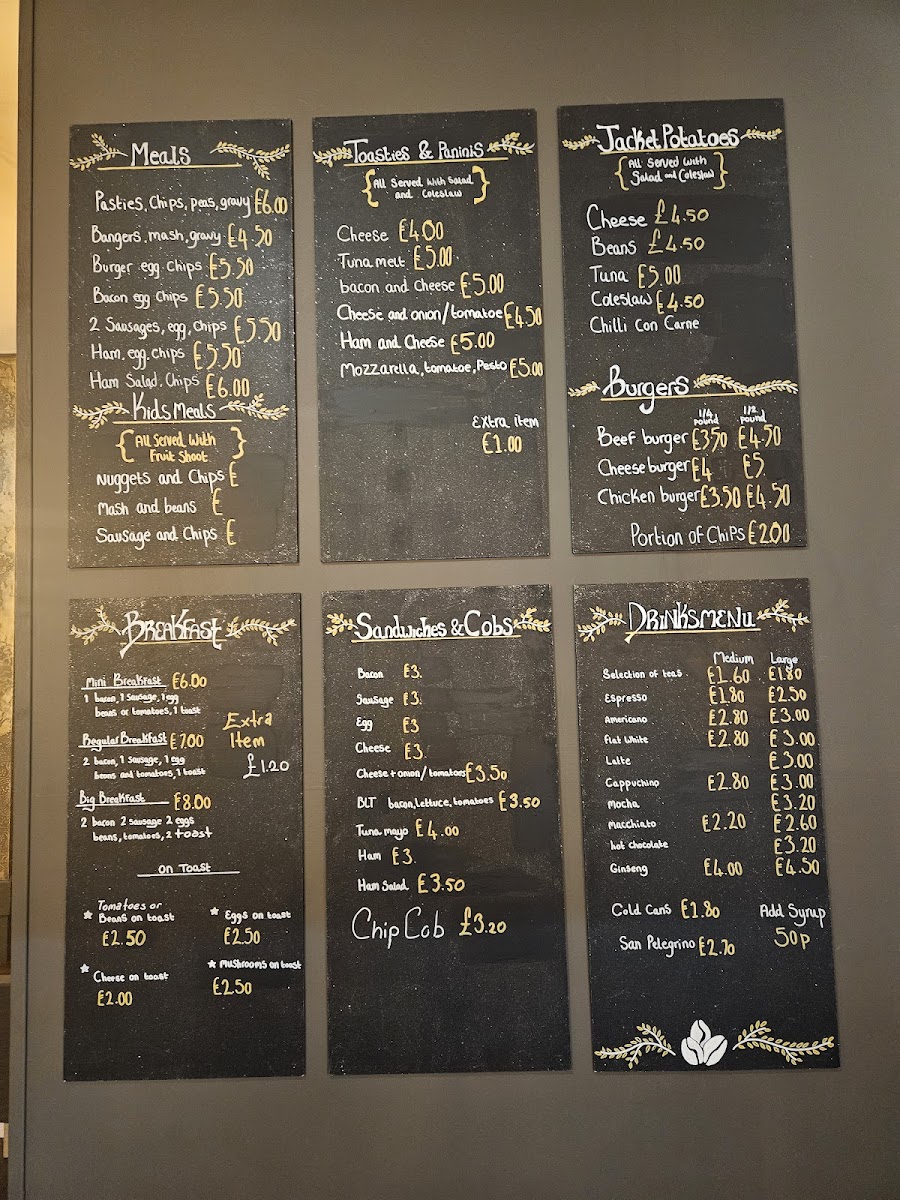 Meals
Pasties, Chips, peas, gravy £6.00
Bangers, mash, gravy £4.50
Burger egg chips £5.50
Bacon egg chips £5.50
2 Sausages, egg, chips £5.50
Ham, egg, chips £5.50
Ham Salad, Chips £6.00
Kids Meals
All Served With
Fruit Shoot
Nuggets and Chips £
Mash and beans £
Sausage and Chips £
Toasties & Paninis
All Served With Salad
and Coleslaw
Cheese £4.00
Tuna melt £5.00
bacon and Cheese £5.00
Cheese and onion/tomatoe £4.50
Ham and Cheese £5.00
Mozzarella, tomatoe, Pesto £5.00
Extra item
£1.00
Jacket Potatoes
All Served with
Salad and Coleslaw
Cheese £4.50
Beans £4.50
Tuna £5.00
Coleslaw £4.50
Chilli Con Carne
Burgers
1/4 pound 1/2 pound
Beef burger £3.50 £4.50
Cheese burger £4 £5
Chicken burger £3.50 £4.50
Portion of Chips £2.00
Breakfast
Mini Breakfast £6.00
1 bacon, 1 sausage, 1 egg
beans or tomatoes, 1 toast
Regular Breakfast £7.00
2 bacon, 1 sausage, 1 egg
beans and tomatoes, 1 toast
Big Breakfast £8.00
2 bacon 2 sausage 2 eggs
beans, tomatoes, 2 toast
Extra
Item
£1.20
on Toast
Tomatoes or
Beans on toast
£2.50
Eggs on toast
£2.50
Cheese on toast
£2.00
Mushrooms on toast
£2.50
Sandwiches & Cobs
Bacon £3.
Sausage £3.
Egg £3
Cheese £3.
Cheese + onion/tomatoes £3.50
BLT bacon, lettuce, tomatoes £3.50
Tuna mayo £4.00
Ham £3.
Ham Salad £3.50
Chip Cob £3.20
Drinks Menu
Medium Large
Selection of teas £1.60 £1.80
Espresso £1.80 £2.50
Americano £2.80 £3.00
Flat White £2.80 £3.00
Latte £3.00
Cappuchino £2.80 £3.00
Mocha £3.20
Macchiato £2.20 £2.60
hot chocolate £3.20
Ginseng £4.00 £4.50
Cold Cans £1.80
San Pelegrino £2.70
Add Syrup
50p